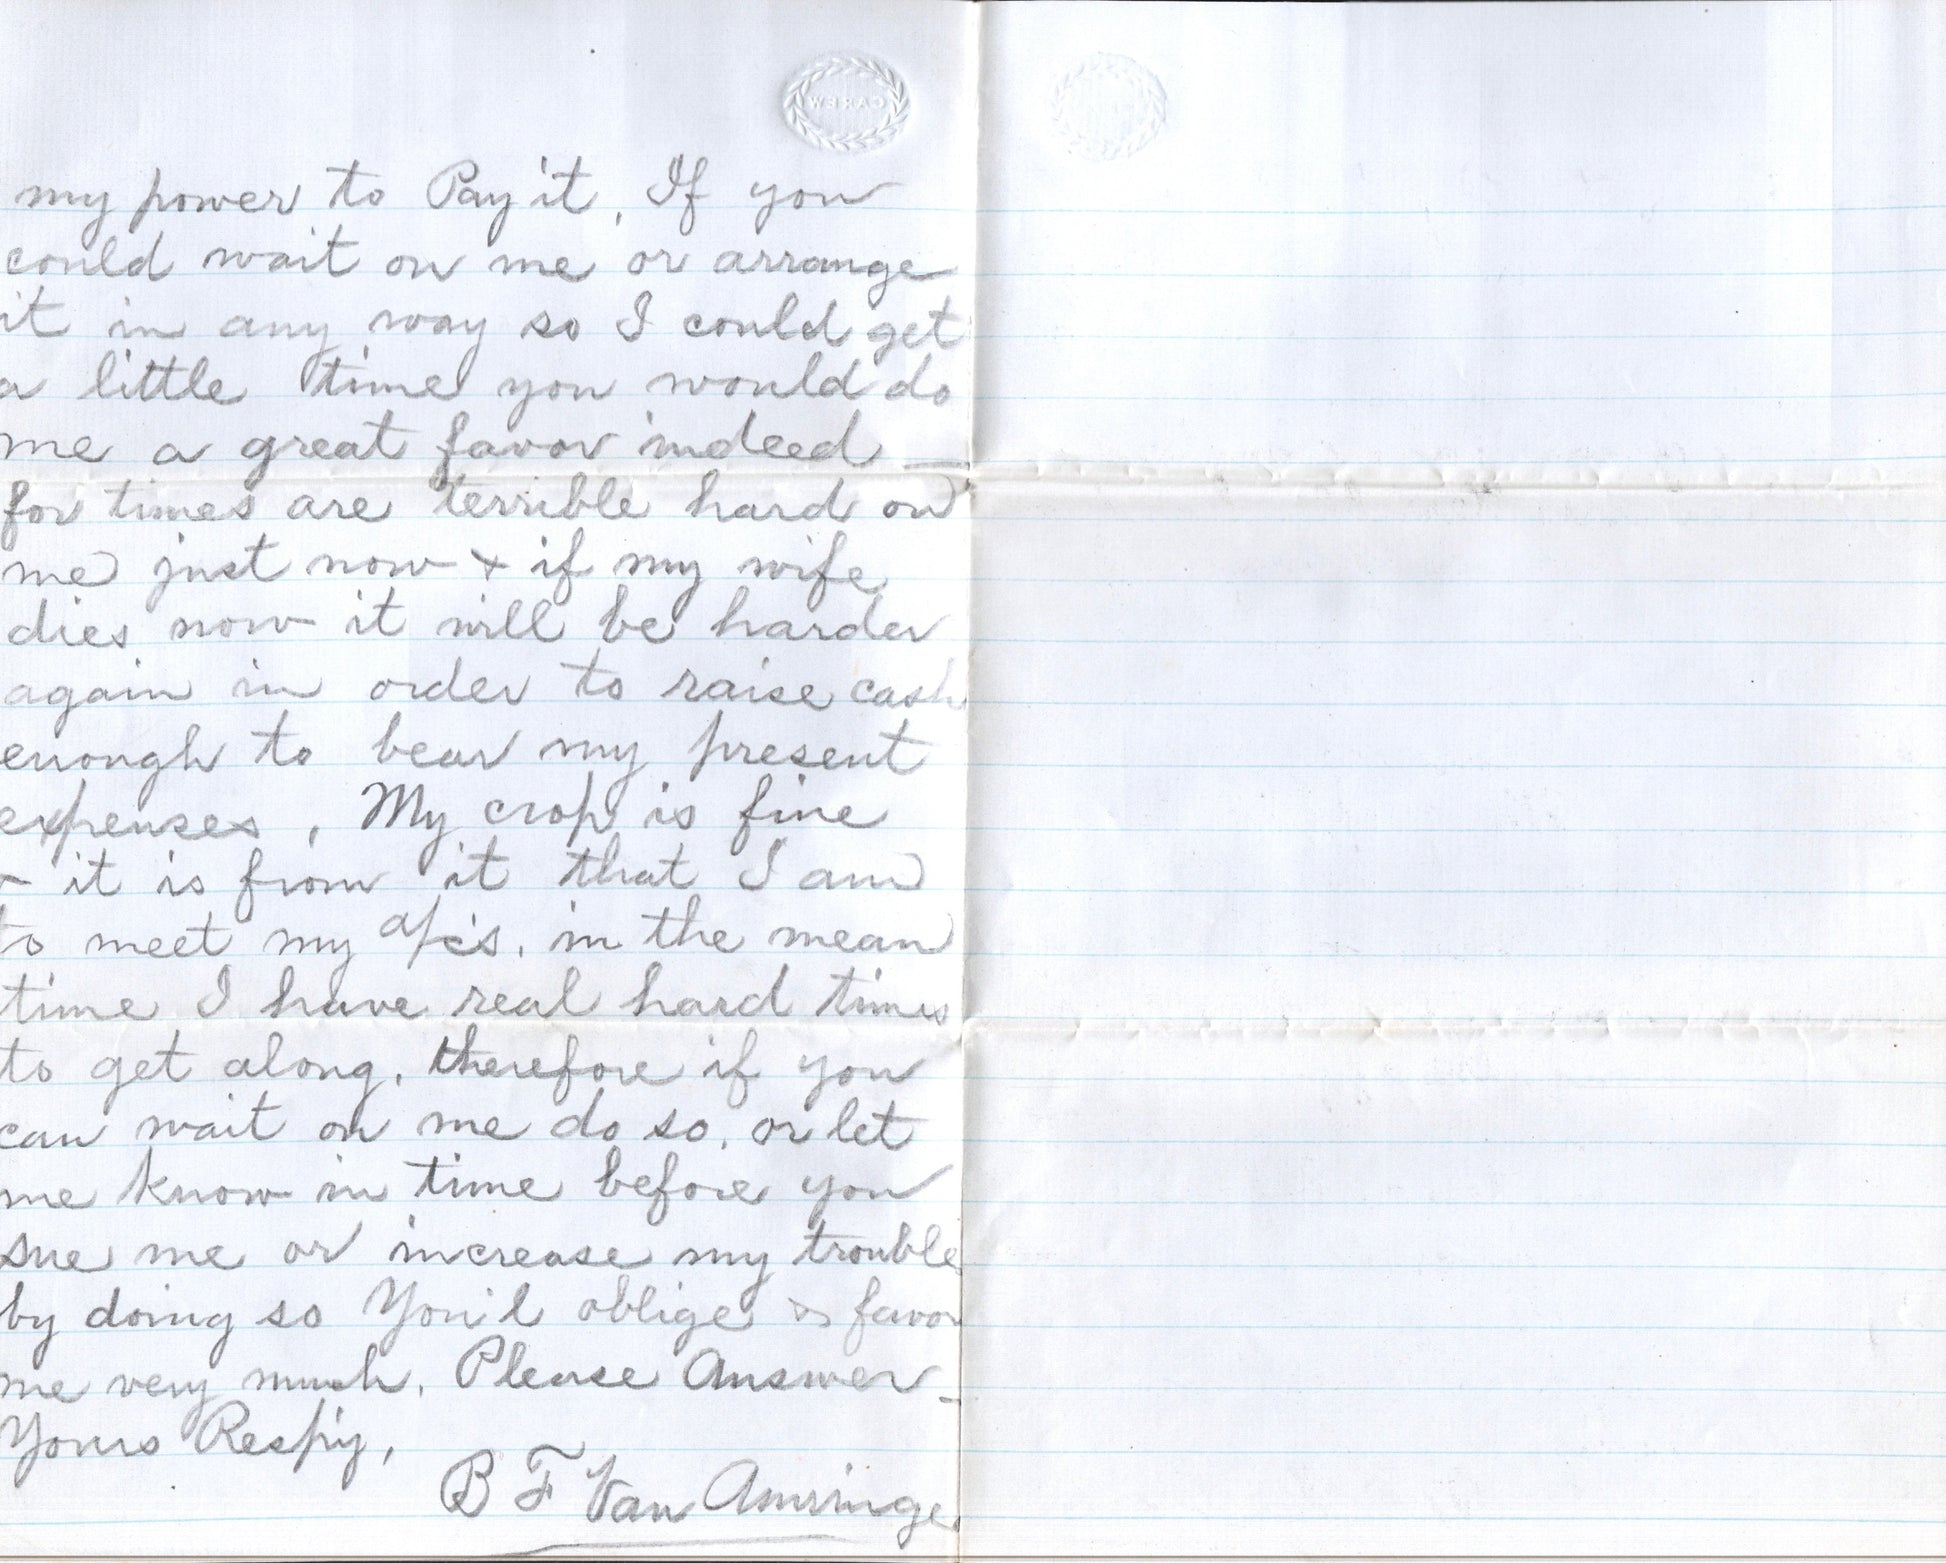 CAREW
my power to Pay it, If you
could wait on me or arrange
it in any way so I could get
a little time you would do
me a great favor indeed —
for times are terrible hard on
me just now & if my wife
dies now it will be harder
again in order to raise cash
enough to bear my present
expenses, My crop is fine
& it is from it that I am
to meet my a/c's, in the mean
time I have real hard times
to get along, therefore if you
can wait on me do so, or let
me know in time before you
sue me or increase my trouble
by doing so You'l oblige & favor
me very much. Please Answer —
Yours Resp'y,
B F Van Amringe